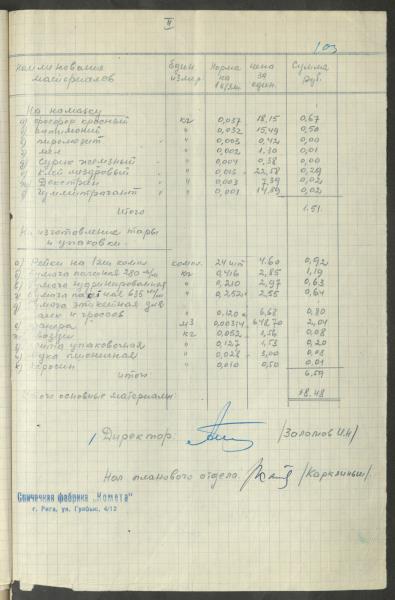 II
103
Наименования материалов Един. измер. Норма на 1 в/эт. Цена за един. Сумма руб.
На намазку
а) фосфор красный кг 0,037 18,15 0,67
антимоний " 0,032 15,49 0,50
пиролюзит " 0,003 0,42 0,00
мел " 0,002 1,30 0,01
д) Сурик железный " 0,004 0,38 0,00
клей мездровый " 0,013 22,58 0,29
Декстрин " 0,003 7,39 0,02
" 0,001 14,89 0,02
Итого 1.51.
На изготовление тары и упаковки.
а) Рейки на 12м компл компл. 24 шт 4.60 0,92
Бумага 280 кг 0,416 2,85 1,19
в) Бумага " 0,210 2,97 0,63
Бумага 635 " 0,252 2,55 0,64
Бумага этикетная для
пачек и гроссов " 0,120 6,68 0,80
фанера м³ 0,00314 648,70 2,04
гвозди кг 0,052 1,56 0,08
упаковочная " 0,127 1,53 0,20
мука пшеничная " 0,028 3,00 0,08
" 0,010 0,50 0,01
итого 6.59
Итого основные материалы: 18.48
Директор: /Золотов И.Н/
Нач планового отдела. /Карклиньш/.
Спичечная фабрика „Комета"
г. Рига, ул. Гулбью, 4/12